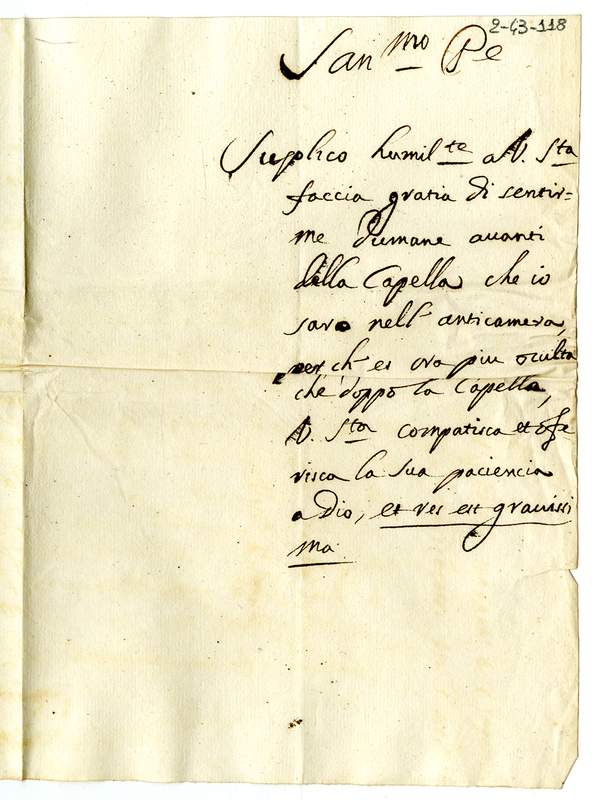 2-43-118
San.mo Pe
Supplico humilte a V. Sta
faccia gratia di sentir=
me dumane auanti
della Capella che io
saro nell' anticamera,
perch' es ora piu oculta
che doppo la Capella,
V. Sta compatisca et offe
risca la sua paciencia
a Dio, et res est grauissi
ma